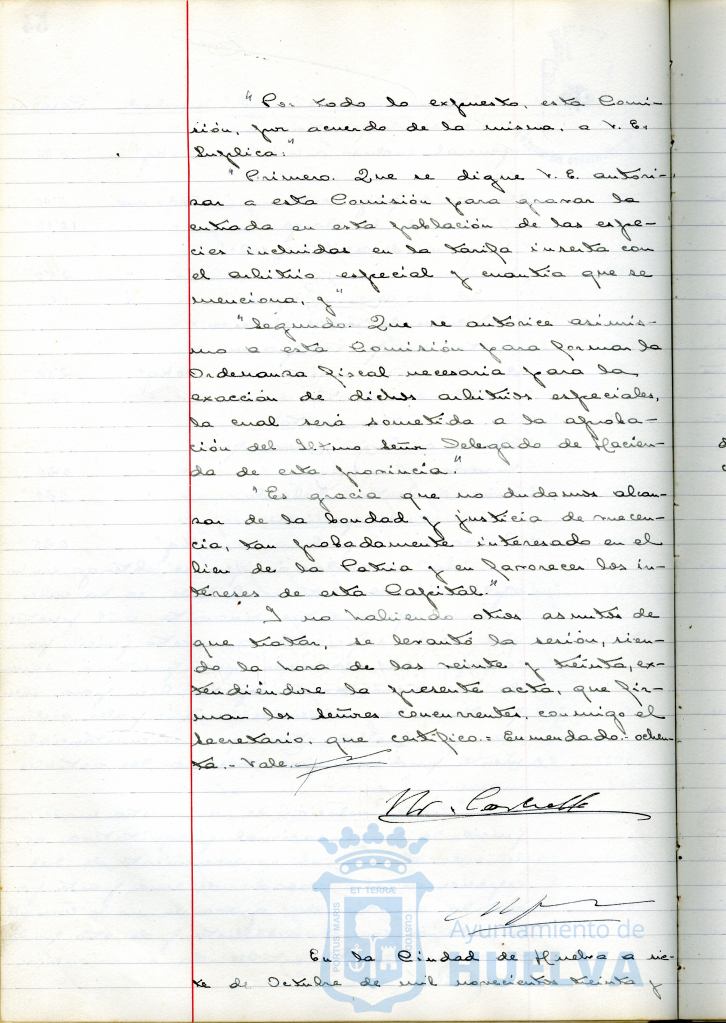 "Por todo lo expuesto, esta Comi-
sión, por acuerdo de la misma, a V. E.
Suplica:"
"Primero. Que se digne V. E. autori-
sar a esta Comisión para gravar la
entrada en esta población de las espe-
cies incluidas en la tarifa inserta con
el arbitrio especial y cuantia que se
menciona, y"
"Segundo. Que se autorice asimis-
mo a esta Comisión para formar la
Ordenanza fiscal necesaria para la
exacción de dichos arbitrios especiales,
la cual será sometida a la aproba-
ción del Iltmo Señor Delegado de Hacien-
da de esta provincia."
"Es gracia que no dudamos alcan-
sar de la bondad y justicia de vuecen-
cia, tan probadamente interesado en el
bien de la Patria y en favorecer los in-
tereses de esta Capital."
Y no habiendo otros asuntos de
que tratar, se levantó la sesión, sien-
do la hora de las veinte y treinta, ex-
tendiéndose la presente acta, que fir-
man los señores concurrentes, conmigo el
secretario, que certifico.= Enmendado.- ochen-
ta.- Vale.
ET TERRÆ
PORTUS MARIS
CUSTODIA
Ayuntamiento de
HUELVA
En la Ciudad de Huelva a sie-
te de Octubre de mil novecientos treinta y